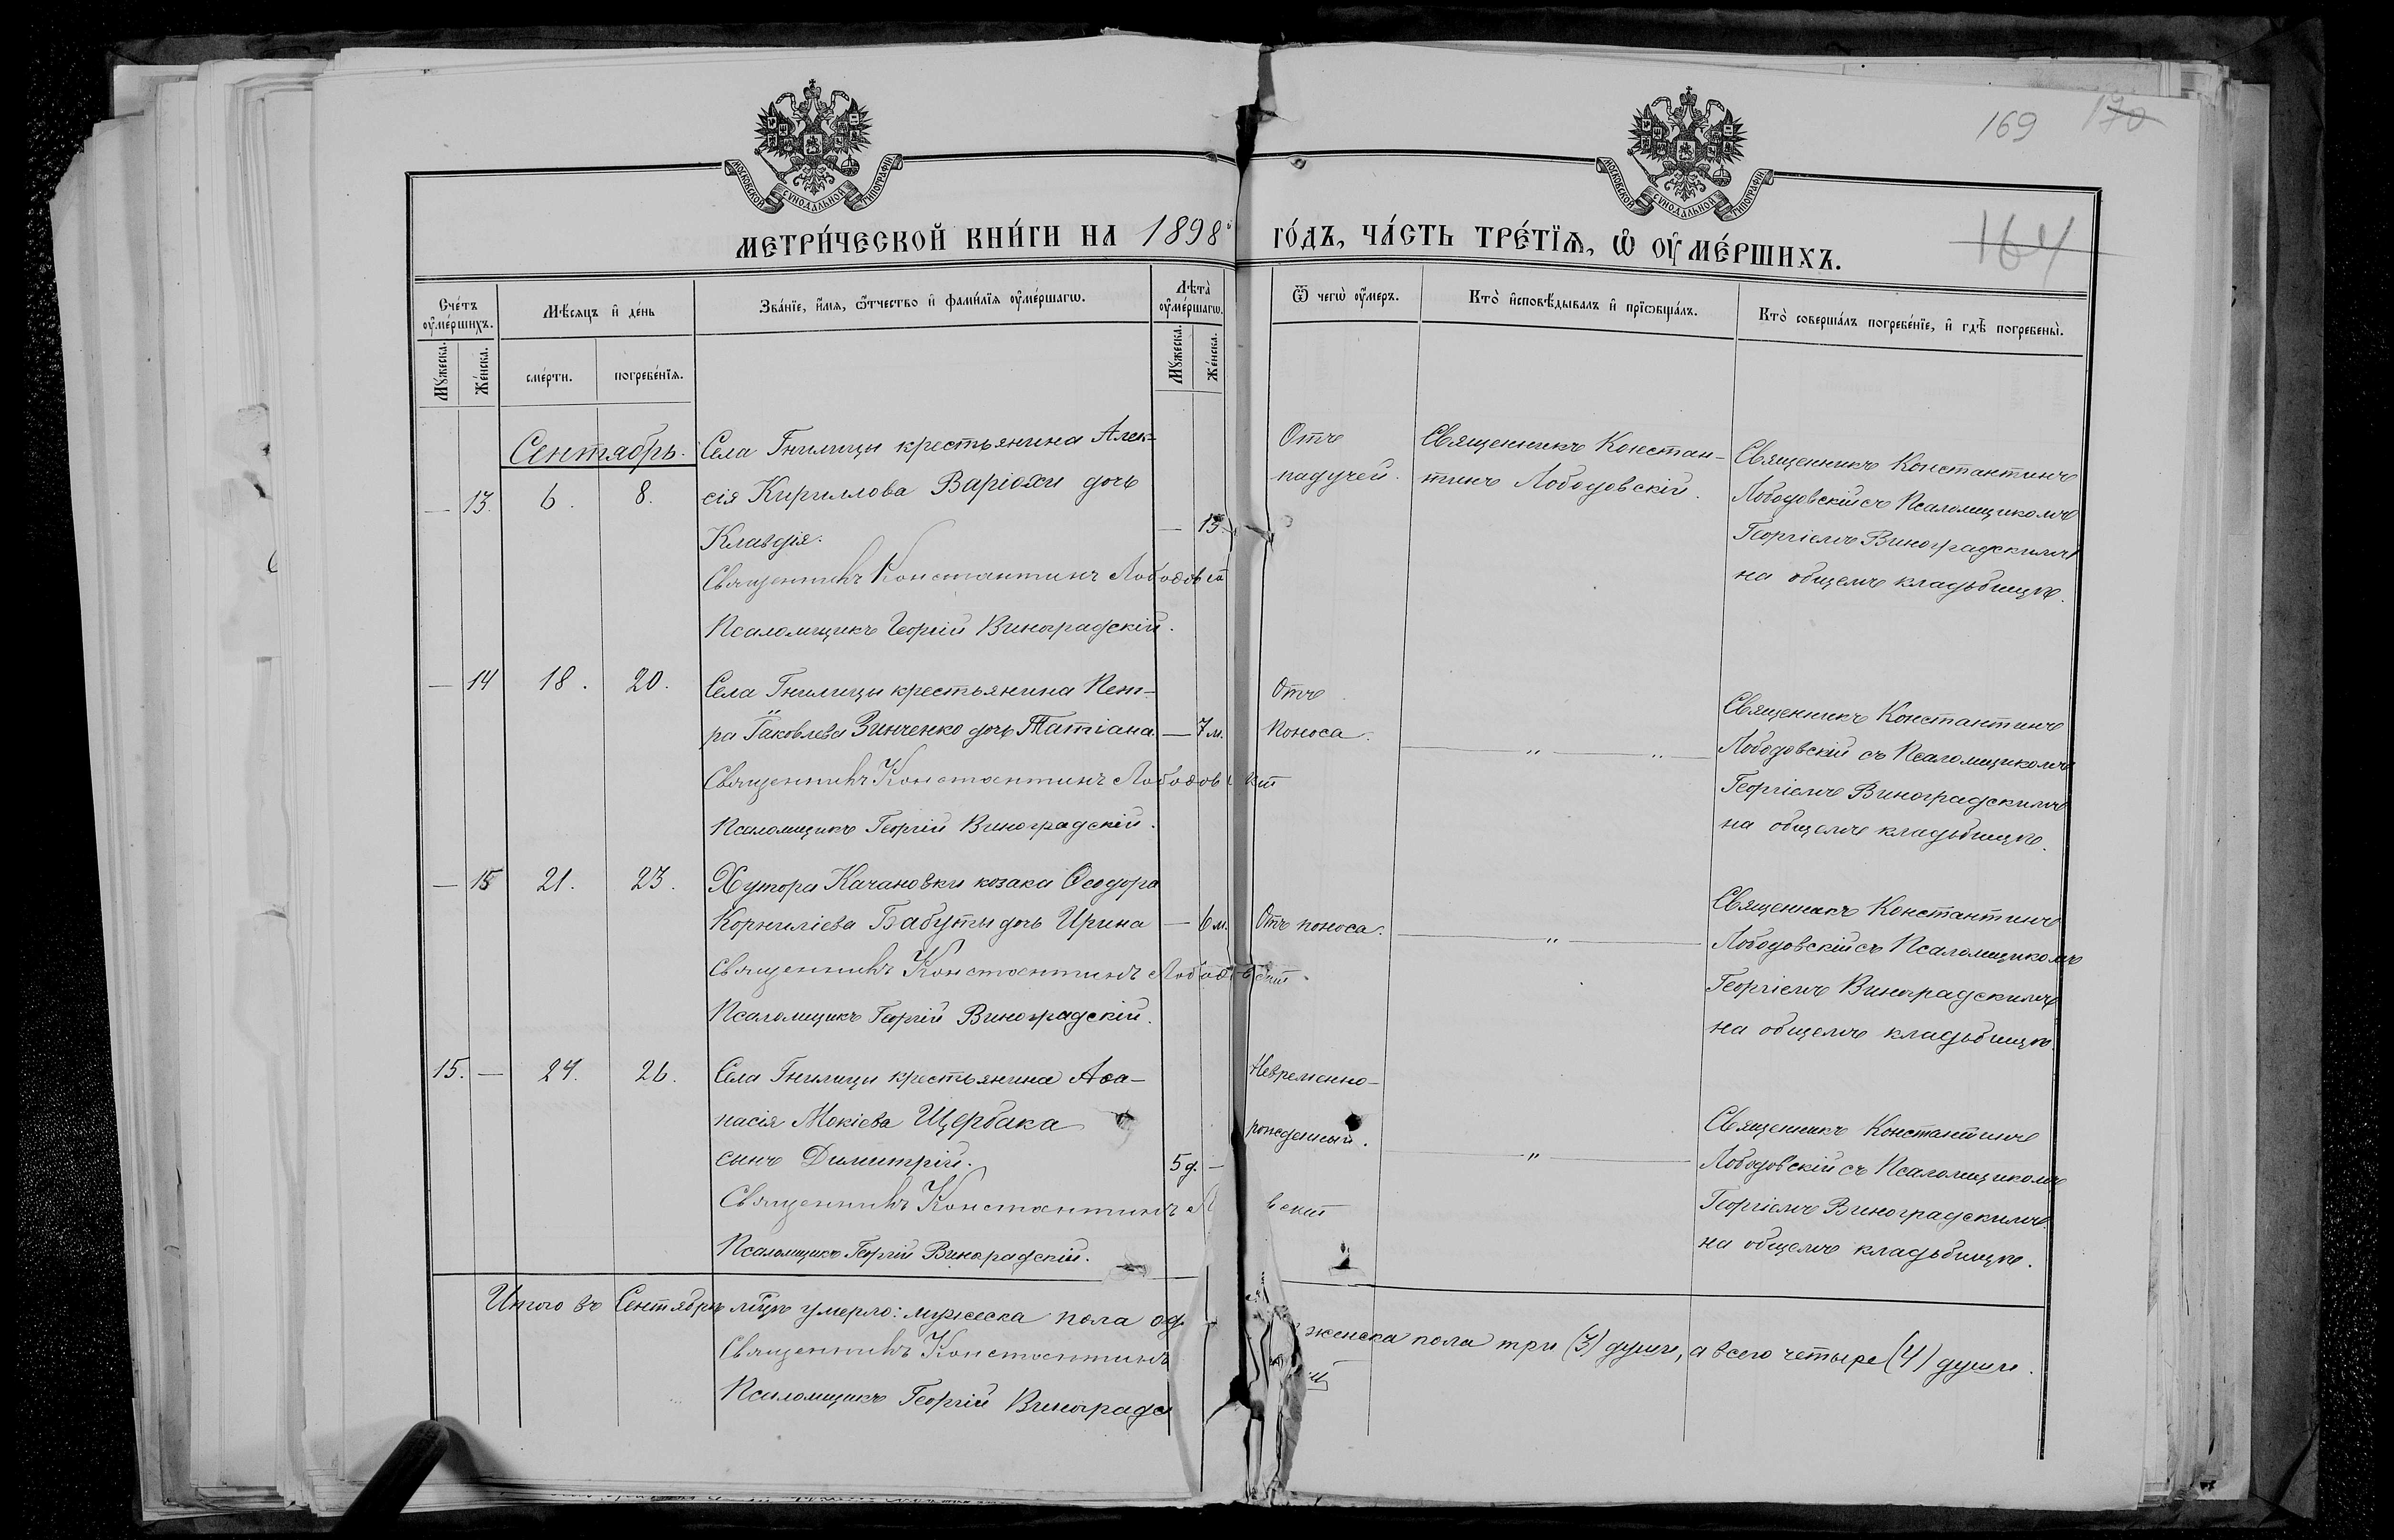 169 170
164
МОСКОВСКОЙ СѴНОДАЛЬНОЙ ТИПОГРАФІИ
МОСКОВСКОЙ СѴНОДАЛЬНОЙ ТИПОГРАФІИ
МЕТРИ́ЧЕСКОЙ КНИ́ГИ НА 1898 ГО́ДЪ, ЧА́СТЬ ТРЕ́ТЇѦ, Ѡ҆ ОУ҆МЕ́РШИХЪ.
Сче́тъ оу҆ме́ршихъ.
Мѣ́сяцъ и҆ де́нь
Зва́нїе, и҆́мѧ, ѻ҆́тчество и҆ фами́лїѧ оу҆ме́ршагѡ.
Лѣта̀ оу҆ме́ршагѡ.
Ѿ чегѡ̀ оу҆́меръ.
Кто̀ и҆сповѣ́дывалъ и҆ прїѡбща́лъ.
Кто̀ соверша́лъ погребе́нїе, и҆ гдѣ̀ погребены̀.
Мꙋ́жеска. Же́нска.
сме́рти. погребе́нїѧ.
Мꙋ́жеска. Же́нска.
Сентябрь.
— 13. 6. 8.
Села Гнилицы крестьянина Алек-
сія Кириллова Варіохи дочь
Клавдія.
— 13.
Священникъ Константинъ Лободовскій
Псаломщикъ Георгій Виноградскій.
Отъ
падучей.
Священникъ Констан-
тинъ Лободовскій.
Священникъ Константинъ
Лободовскій съ Псаломщикомъ
Георгіемъ Виноградскимъ
на общемъ кладбищѣ.
— 14 18. 20.
Села Гнилицы крестьянина Пет-
ра Іаковлева Зинченко дочь Татіана. — 7 м.
Священникъ Константинъ Лободовскій
Псаломщикъ Георгій Виноградскій.
Отъ
поноса.
— „ — „ —
Священникъ Константинъ
Лободовскій съ Псаломщикомъ
Георгіемъ Виноградскимъ
на общемъ кладьбищѣ.
— 15 21. 23.
Хутора Качановки козака Ѳеодора
Корниліева Бабуты дочь Ирина — 6 м.
Священникъ Константинъ Лободовскій
Псаломщикъ Георгій Виноградскій.
Отъ поноса.
— „ —
Священникъ Константинъ
Лободовскій съ Псаломщикомъ
Георгіемъ Виноградскимъ
на общемъ кладьбищѣ.
15. — 24. 26.
Села Гнилицы крестьянина Аѳа-
насія Мокіева Щербака
сынъ Димитрій.
5 д. —
Священникъ Константинъ Л вскій
Псаломщикъ Георгій Виноградскій.
Невременно-
рожденный.
— „ —
Священникъ Константинъ
Лободовскій съ Псаломщикомъ
Георгіемъ Виноградскимъ
на общемъ кладьбищѣ.
Итого въ Сентябрѣ мѣцѣ умерло: мужеска пола од женска пола три (3) души, а всего четыре (4) души.
Священникъ Константинъ
Псаломщикъ Георгій Виноградс